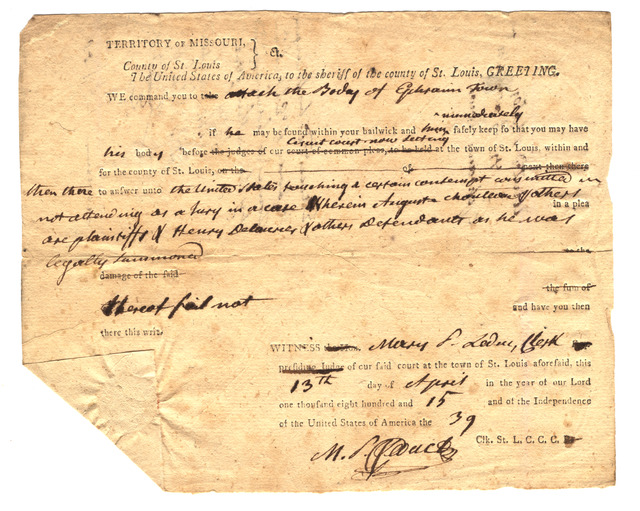 TERRITORY OF MISSOURI,
County of St. Louis
The United States of America, to the sheriff of the county of St. Louis, GREETING.
WE command you to take attach the Body of Ephraim Town
immediately
if he may be found within your bailwick and him safely keep so that you may have
Circuit court now setting
his body before the judges of our court of common pleas, to be held at the town of St. Louis, within and
for the county of St. Louis, on the of next then there
then there to answer unto the United States touching a certain contempt committed in
not attending as a Jury in a case Wherein August Chouteau & others in a plea
are plaintiffs & Henry & others Defendants as he was
legally Summoned to the
damage of the said
the sum of
thereof fail not and have you then
there this writ.
WITNESS the Hon. Mary P. Leduc, Clerk
presiding Judge of our said court at the town of St. Louis aforesaid, this
13th day of April in the year of our Lord
one thousand eight hundred and 15 and of the Independence
of the United States of America the 39
M. P. Leduc Clk. St. L. C. C. C.